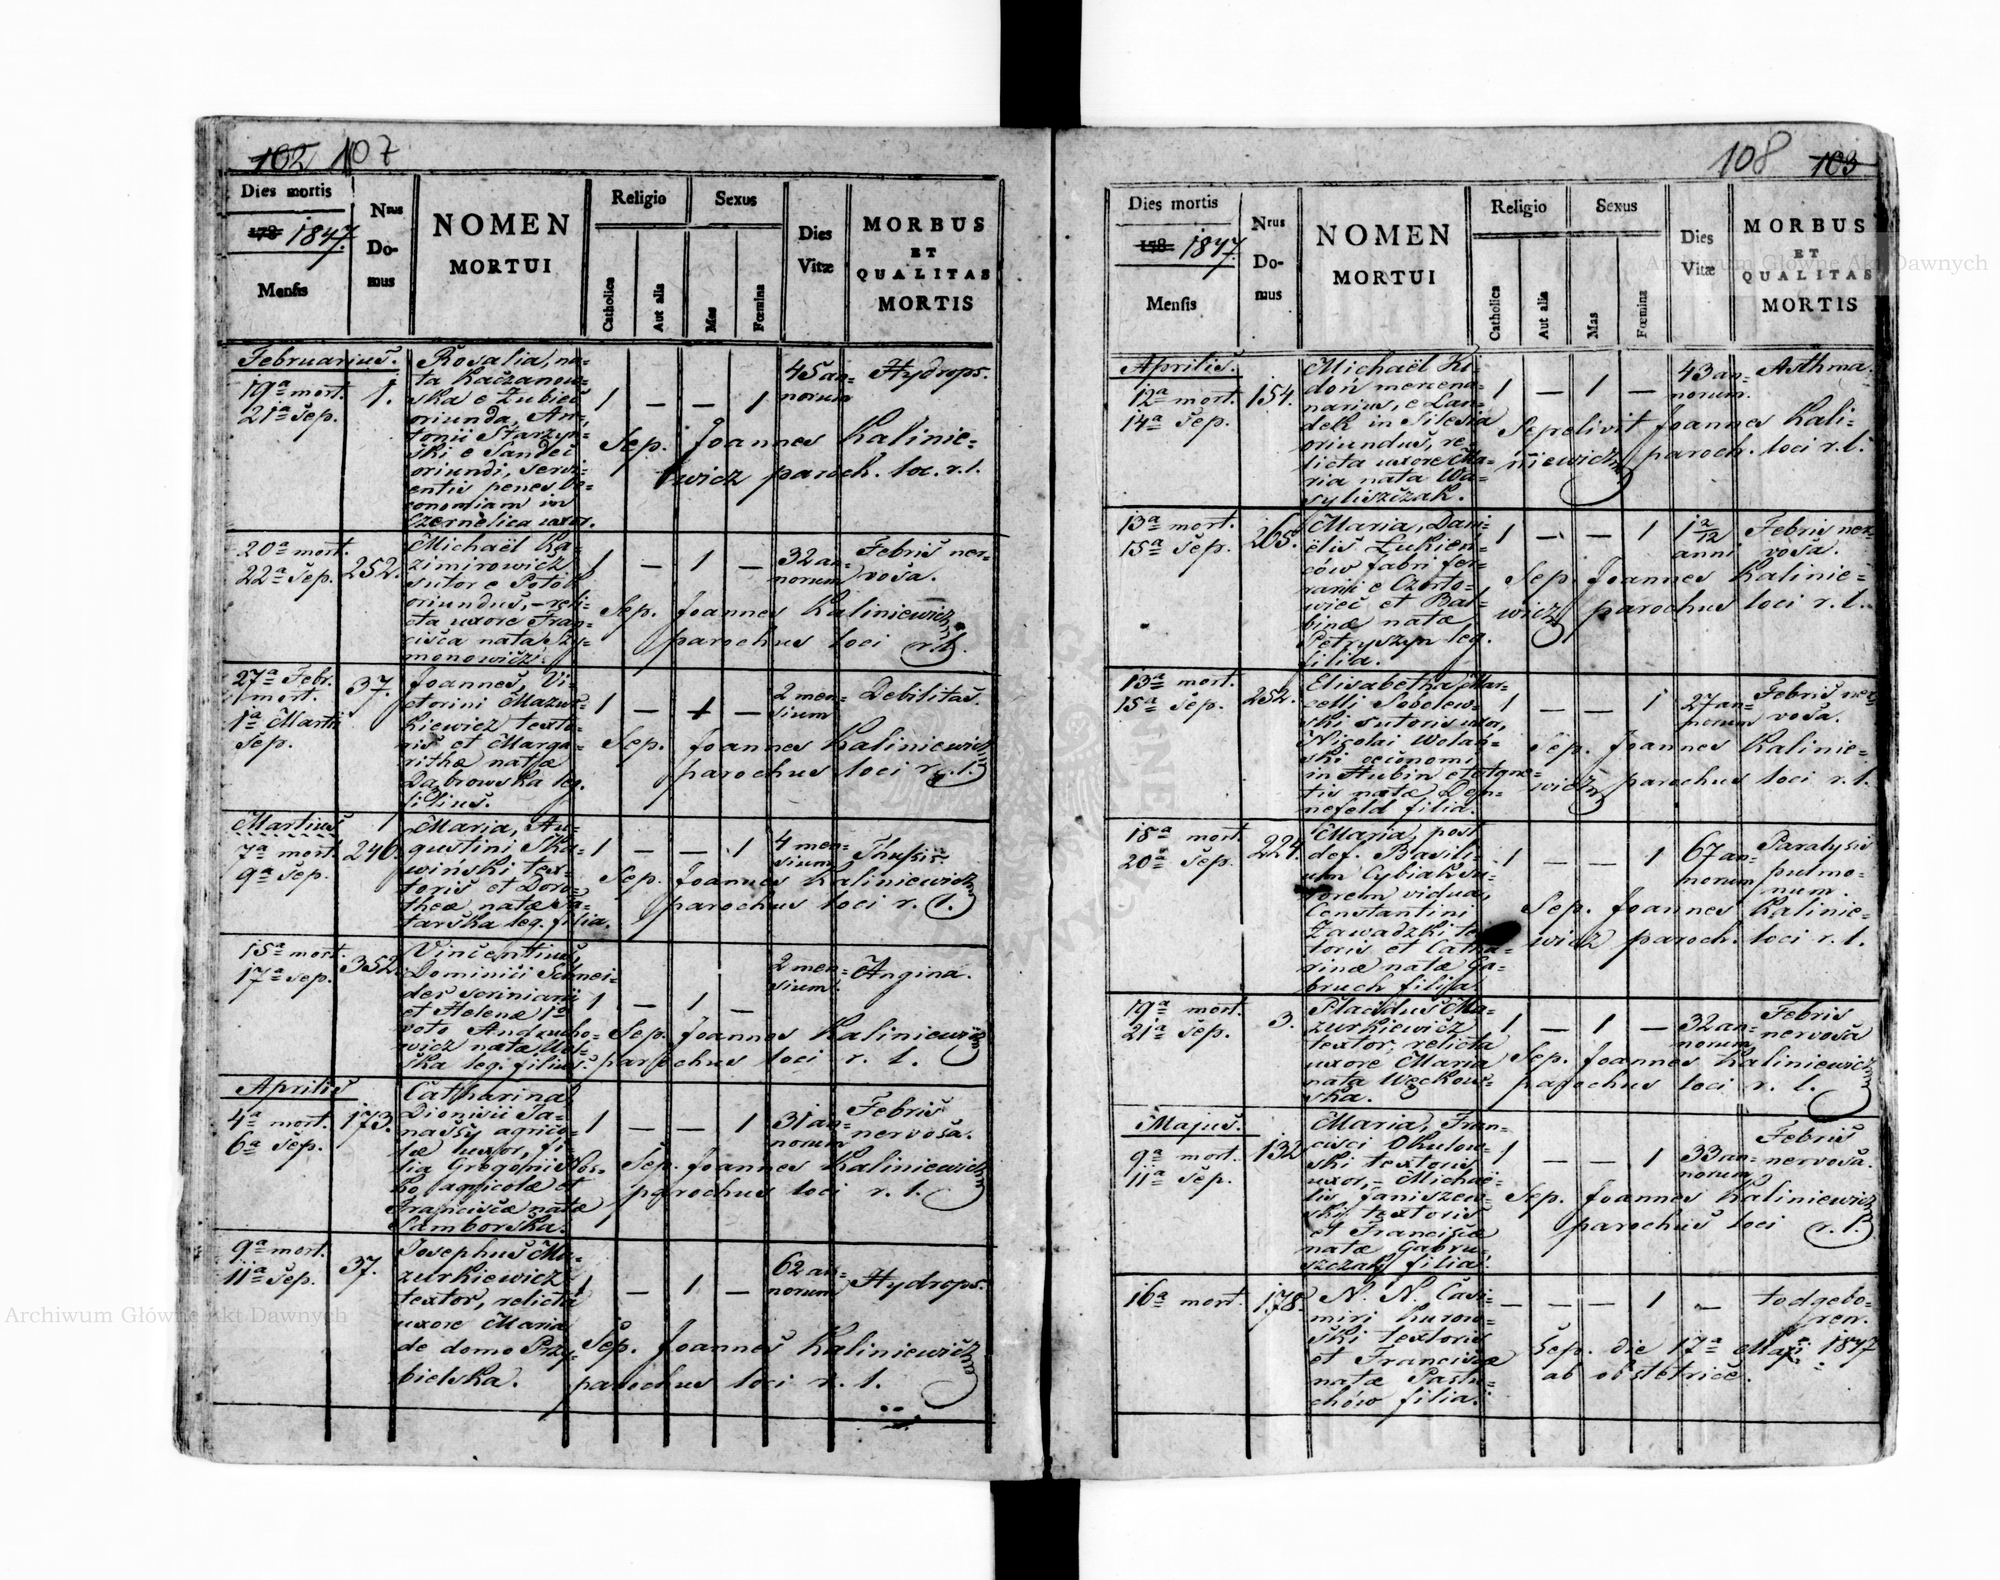 102 107
Dies mortis
178 1847.
Mensis
Nrus
Do-
mus
NOMEN
MORTUI
Religio
Catholica
Aut alia
Sexus
Mas
Fœmina
Dies
Vitæ
MORBUS
ET
QUALITAS
MORTIS
Februarius.
19a mort.
21a Sep.
1.
Rosalia, na-
ta Kaczanow-
ska e Zubiec
oriunda, An-
tonii Starzyn-
ski e Sandec
oriundi, servi-
entis penes oe-
conomiam in
Czernelica uxor.
1 — — 1
45 an-
norum
Hydrops.
Sep. Joannes Kalinie-
wicz paroch. loc. r. l.
20a mort.
22a Sep.
252.
Michaël Ka-
zimirowicz
sutor e Potok
oriundus, – reli-
cta uxore Fran-
cisca nata Szy-
monowicz.
1 — 1 —
32 an-
norum
Febris ner-
vosa.
Sep. Joannes Kaliniewicz
parochus loci r. l.
27a Febr.
mort.
1a Martii
Sep.
37.
Joannes, Vi-
ctorini Mazur-
kiewicz texto-
ris et Marga-
rithæ natæ
Dąbrowska leg.
filius.
1 — 1 —
2 men-
sium
Debilitas.
Sep. Joannes Kaliniewicz
parochus loci r. l.
Martius
7a mort.
9a Sep.
246.
Maria, Au-
gustini Ska-
wiński tex-
toris et Doro-
theæ natæ Ta-
tarska leg. filia.
1 — — 1
4 men-
sium
Sep. Joannes Kaliniewicz
parochus loci r. l.
15a mort.
17a Sep.
352.
Vincentius,
Dominici Schnei-
der scriniarii
et Helenæ 1o
voto
wicz natæ Wol-
ska leg. filius.
1 — 1 —
2 men-
sium.
Angina.
Sep. Joannes Kaliniewicz
parochus loci r. l.
Aprilis
4a mort.
6a Sep.
173.
Catharina,
Dionisii Ta-
nassy agrico-
læ uxor, fi-
lia Gregorii Nos-
ko agricolæ et
Franciscæ natæ
Samborska.
1 — — 1
31 an-
norum
Febris
nervosa.
Sep. Joannes Kaliniewicz
parochus loci r. l.
9a mort.
11a Sep.
37.
Josephus Ma-
zurkiewicz
textor, relicta
uxore Maria
de domo Przy-
bielska.
1 — 1 —
62 an-
norum
Hydrops.
Sep. Joannes Kaliniewicz
parochus loci r. l.
108 103
Dies mortis
178 1847.
Mensis
Nrus
Do-
mus
NOMEN
MORTUI
Religio
Catholica
Aut alia
Sexus
Mas
Fœmina
Dies
Vitæ
MORBUS
ET
QUALITAS
MORTIS
Aprilis.
12a mort.
14a Sep.
154.
Michaël Ki-
doń mercena-
narius, e Lan-
dek in Silesia
oriundus, re-
licta uxore Ma-
ria nata Wa-
syliszczak.
1 — 1 —
43 an-
norum.
Asthma.
Sepelivit Joannes Kali-
niewicz paroch. loci r. l.
13a mort.
15a Sep.
265.
Maria, Dani-
ëlis Łukien-
ców fabri fer-
rarii e Czorto-
wiec et Bal-
binæ natæ
Petryszyn leg.
filia.
1 — — 1
1 2/12
anni
Febris ner-
vosa.
Sep. Joannes Kalinie-
wicz parochus loci r. l.
13a mort.
15a Sep.
252.
Elisabetha Mar-
celli Sobolew-
ski sutoris uxor,
Nicolai Wolań-
ski oeconomi
in Hubin et Agne-
tis natæ Dep-
nefeld filia.
1 — — 1
27 an-
norum
Febris ner-
vosa.
Sep. Joannes Kalinie-
wicz parochus loci r. l.
18a mort.
20a Sep.
224.
Maria, post
def. Basili-
um Cybiak su-
torem vidua,
Constantini
Zawadzki tex-
toris et Catha-
rinæ natæ Ga-
bruch filia.
1 — — 1
67 an-
norum
Paralysis
pulmo-
num.
Sep. Joannes Kalinie-
wicz paroch. loci r. l.
19a mort.
21a Sep.
3.
Placidus Ma-
zurkiewicz
textor, relicta
uxore Maria
nata Węckow-
ska.
1 — 1 —
32 an-
norum
Febris
nervosa
Sep. Joannes Kaliniewicz
parochus loci r. l.
Majus.
9a mort.
11a Sep.
132
Maria, Fran-
cisci Okulow-
ski textoris
uxor, – Michaë-
lis Janiszew-
ski textoris
et Franciscæ
natæ Gabru-
szczak filia.
1 — — 1
33 an-
norum
Febris
nervosa.
Sep. Joannes Kaliniewicz
parochus loci r. l.
16a mort.
178.
N. N. Casi-
miri Kurow-
ski textoris
et Franciscæ
natæ Pastu-
chów filia.
— — — 1 —
todgebo-
ren.
Sep. die 17a Maji 1847
ab obstetrice.
Archiwum Główne Akt Dawnych
Archiwum Główne Akt Dawnych